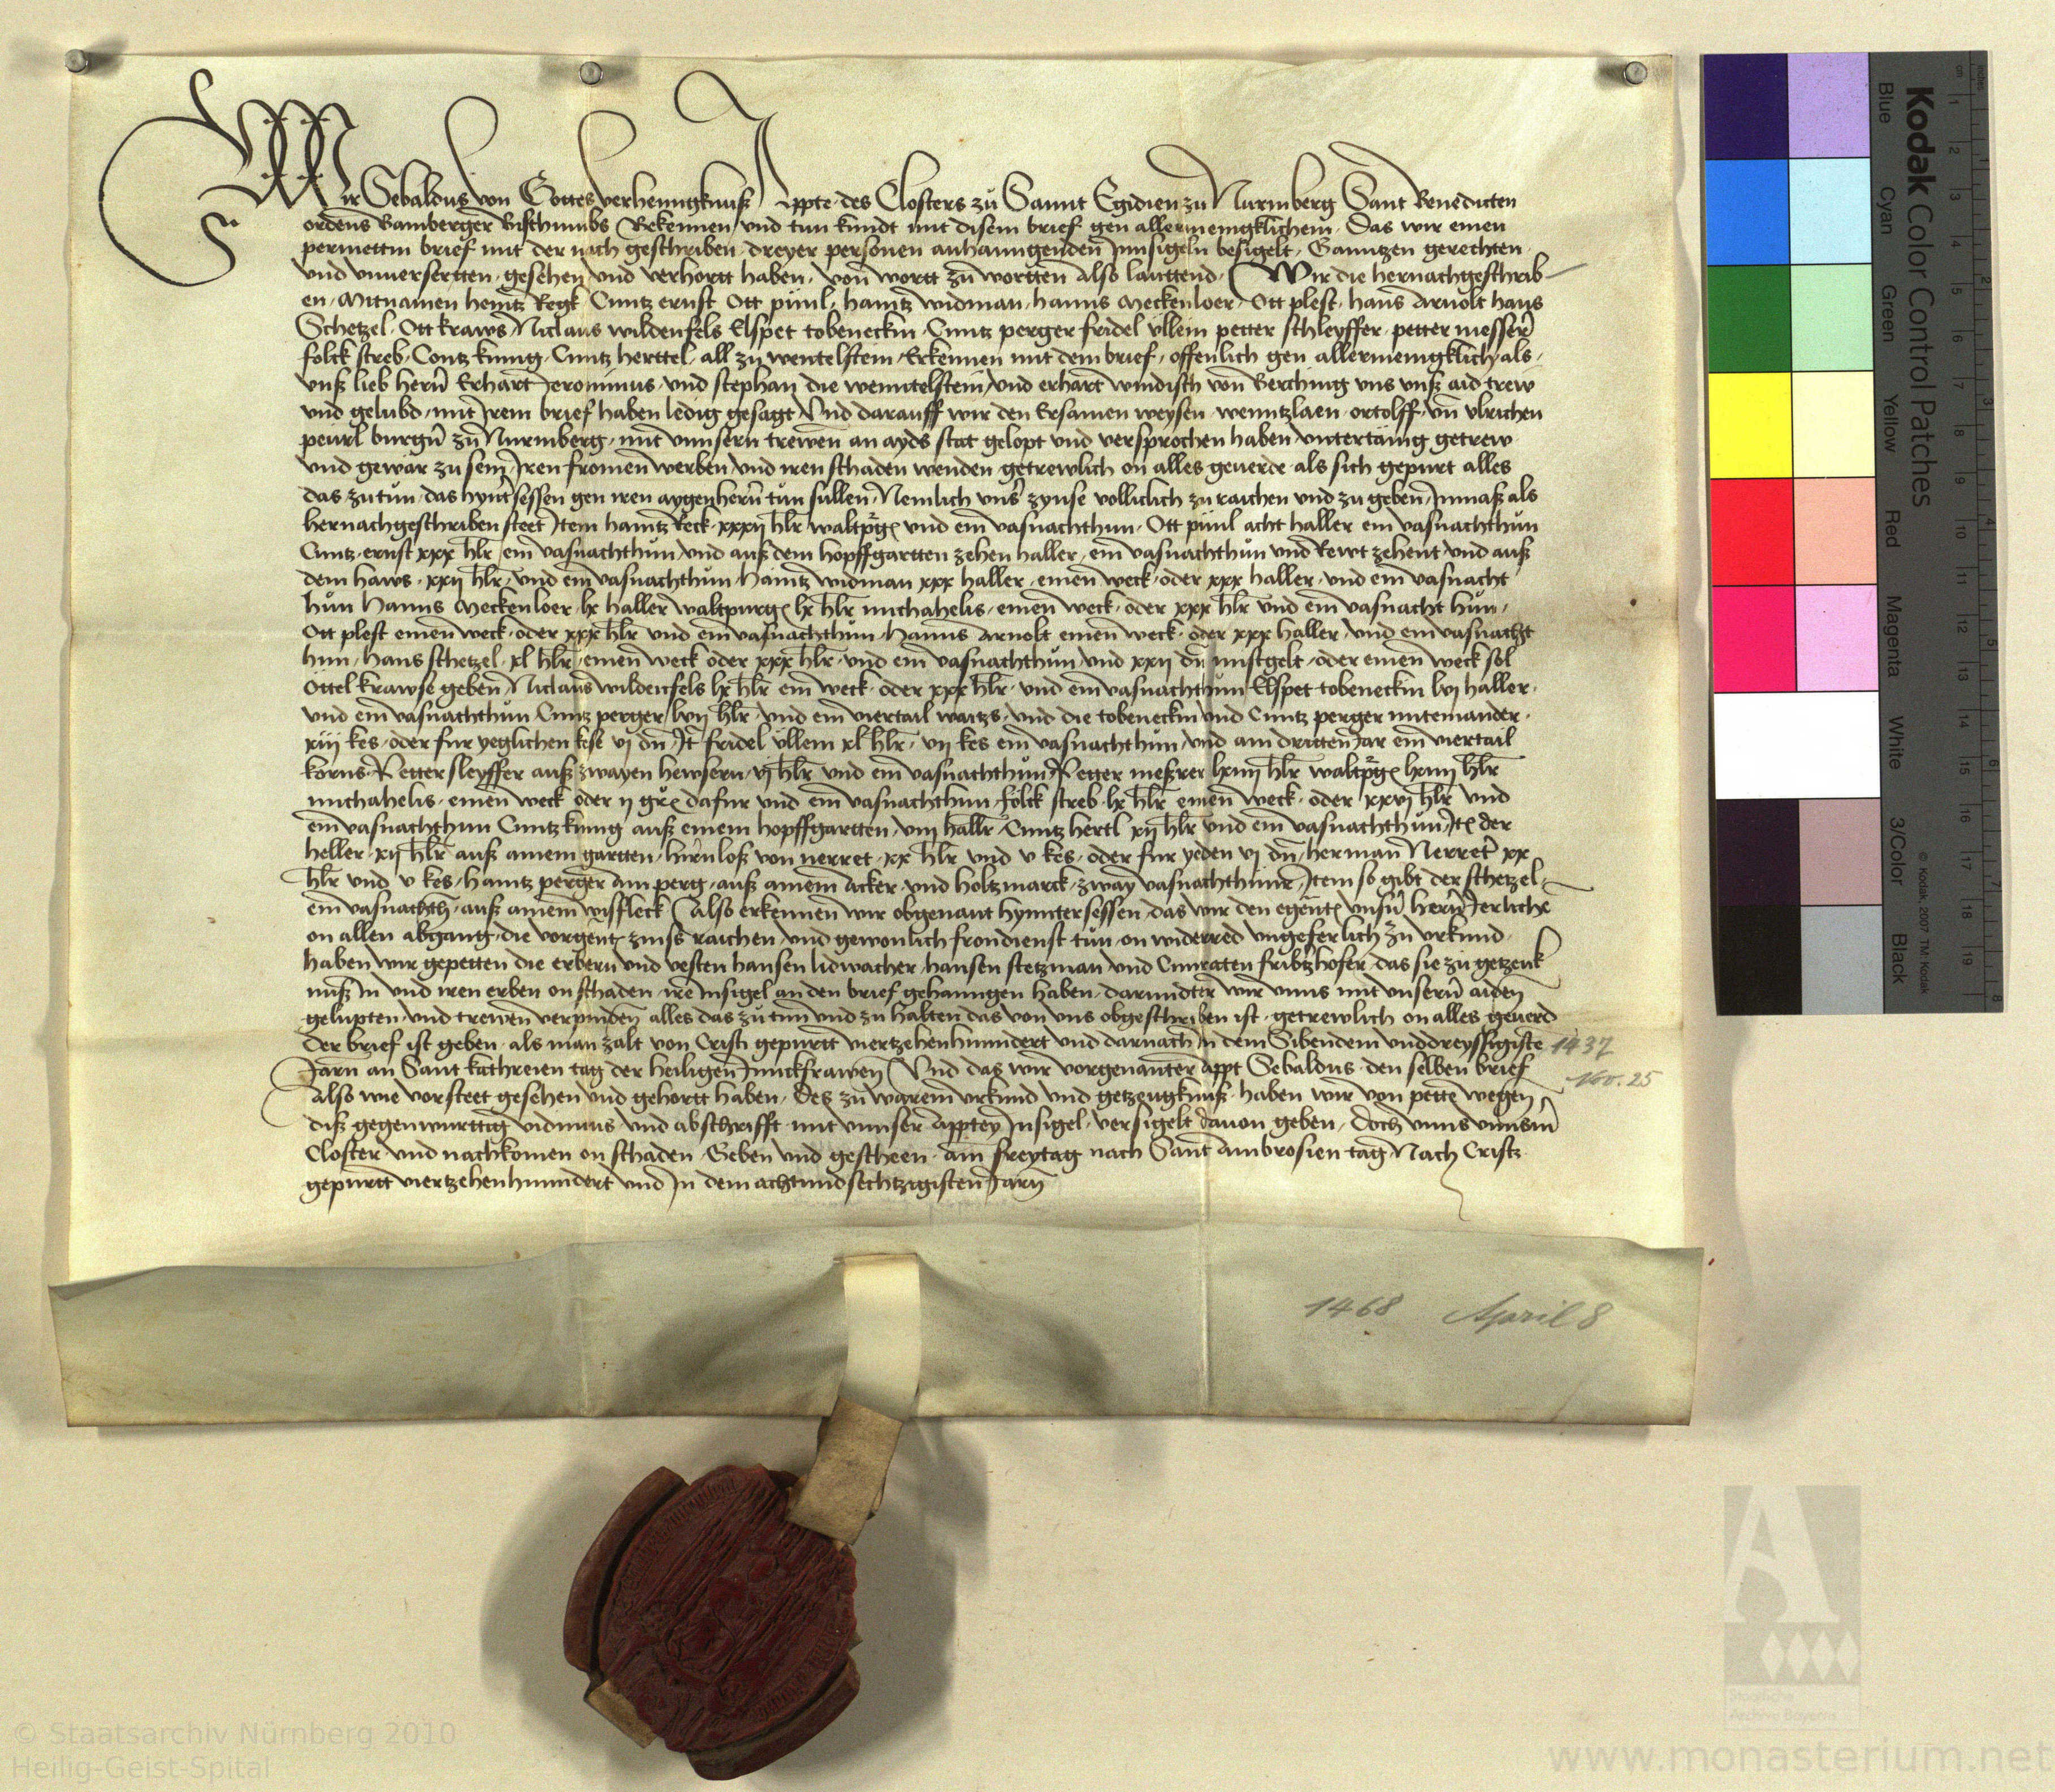 Wir Sebaldus von Gottes verhenngknuß Appte des Closters zu Sannt Egidien zu Nurmberg Sant Benedicten
ordens Bamberger Bisthumbs Bekennen und tun kundt mit disem brief gen allermeingklichem Das wir einen
permettin brief mit der nach geschriben dreyer personen anhanngenden Innsigeln besigelt Ganntzen gerechten
und unuersertten gesehen und verhortt haben von wortt zu wortten also lauttend Wir die hernachgeschrib
en mitnamen heintz Regk Cuntz ernst Ott pünl hantz widman hanns Meckenloer Ott plest hans Arnolt hans
Schetzel Ott kraws Niclaus wildenfels Elspet tobeneckin Cuntz perger fridel üllein petter schleyffer petter messer
folck streb Contz kunig Cuntz herttel all zu wentelstein Erkennen mit dem brief offenlich gen allermenigklich als
unß lieb hern Erhart Jeronimus und stephan die wenntelstein und erhart windisch von Berching uns unß aid trew
und gelubd mit Irem brief haben ledig gesagt Und darauff wir den Ersamen weysen wenntzlaen ortolff un ulrichen
peurl burgn zu Nurmberg mit unnsern trewen an ayds stat gelopt und versprochen haben untertanig getrew
und gewar zu sein Iren fromen werben und iren schaden wenden getrewlich on alles geuerde als sich gepurt alles
das zu tun das hyntsessen gen iren aygen hern tun sullen Nemlich uns zynse volliclich zu raichen und zu geben Inmaß als
hernachgeschriben steet Item haintz Reck xxxij hlr waltpg und ein vasnachthun Ott pünl acht haller ein vasnachthun
Cuntz ernst xxx hlr ein vasnachthun und auß dem hopffgartten zehen haller ein vasnachthun und Rewt zehent und auß
dem haws xxij hlr und ein vasnachthun haintz widman xxx haller einen weck oder xxx haller und ein vasnacht
hun Hanns Meckenloer lx haller waltpurg lx hlr michahelis einen weck oder xxx hlr und ein vasnacht hun
Ott plest einen weck oder xxx hlr und ein vasnachthun Hanns Arnolt einen weck oder xxx haller und ein vasnacht
hun hans schetzel xl hlr einen weck oder xxx hlr und ein vasnachthun und xxij dn mistgelt oder einen weck sol
Ottel krawse geben Niclaus wildenfels lx hlr ein weck oder xxx hlr und ein vasnachthun Elspet tobeneckin lvj haller
und ein vasnachthun Cuntz perger lvij hlr und ein viertail waitzs und die tobeneckin und Cuntz perger miteinander
xiij kes oder fur yeglichen kese vj dn It fridel üllein xl hlr vij kes ein vasnachthun und am dritten Jar ein viertail
korns Petter sleyffer auß zwayen hewsern vj hlr und ein vasnachthun Petter meßrer lxiiij hlr waltpg lxiiij hlr
michahelis einen weck oder ij gr dafur und ein vasnachthun folck streb lx hlr einen weck oder xxvj hlr und
ein vasnachthun Cuntz kunig auß einem hopffgartten viij hallr Cuntz hertl xij hlr und ein vasnachthun It der
heller xij hlr auß ainem gartten hirnloß von nerret xx hlr und v kes oder fur yeden vj dn herman Nerret xx
hlr und v kes haintz perger am perg auß ainem acker und holtzmarck zway vasnachthuner Item so gibt der schetzel
ein vasnachth auß ainem wisfleck also erkennen wir obgenant hynntersessen das wir den egent unsn hern Jerliche
on allen abgang die vorgent zinß raichen und gewonlich frondienst tun on widerred ungeferlich zu urkund
haben wir gepetten die erbern und vesten hansen lidwacher hansen stetzman und Cunraten fribtzhofer das sie zu getzeuk
nuß In und iren erben on schaden ire Insigel an den brief gehanngen haben darundter wir unns mit unsern aiden
gelupten und trewen verpinden alles das zu tun und zu halten das von uns obgeschriben ist getrewlich on alles geuerd
Der brief ist geben als man zalt von Cristi gepurtt viertzehenhunndert und darnach in dem Sibendem unddreyssigiste 1437
Jarn an Sant kathreien tag der heiligen Junckfrawen Und das wir vorgenanter Appt Sebaldus den selben brief Nov. 25
Also wie vorsteet gesehen und gehortt haben Des zu warem urkund und getzeugknuß haben wir von pette wegen
diß gegenwurttig vidimus und abschrifft mit unnser Apptey Insigel versigelt dauon geben Doch unns unnserm
Closter und nachkomen on schaden Geben und gescheen am freytag nach Sant ambrosien tag Nach Cristi
gepurtt viertzehenhunndert und In dem achtundsechtzigisten Jarn
1468 April 8
Kodak Color Control Patches
Blue Cyan Green Yellow Red Magenta White 3/Color Black
© Kodak, 2007 TM: Kodak
© Staatsarchiv Nürnberg 2010
Heilig-Geist-Spital
Staatliche
Archive Bayerns
www.monasterium.net